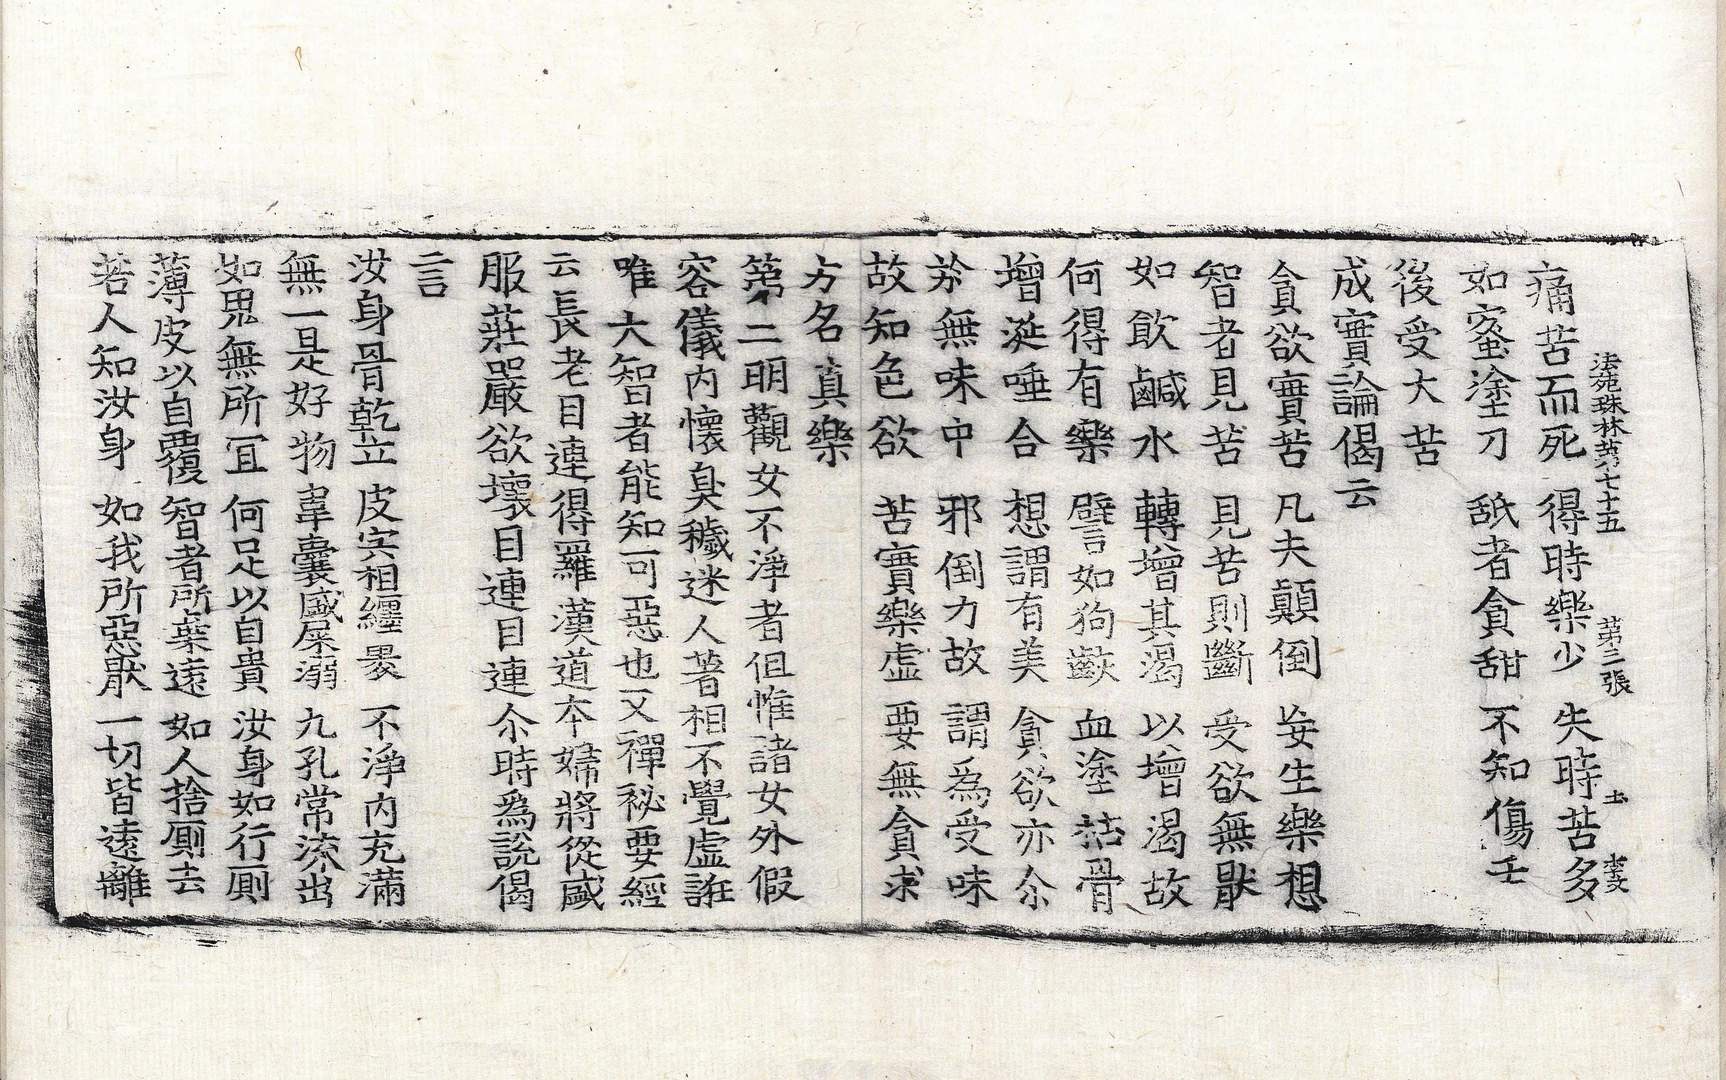 法苑珠林苐七十五 苐三張 土 李文
痛苦而死 得時樂少 失時苦多
如蜜塗刀 舐者貪甜 不知傷舌
後受大苦
成實論偈云
貪欲實苦 凡夫顛倒 妄生樂想
智者見苦 見苦則斷 受欲無猒
如飮鹹水 轉增其渴 以增渴故
何得有樂 譬如狗齩 血塗枯骨
增涎唾合 想謂有美 貪欲亦尒
於無味中 邪倒力故 謂爲受味
故知色欲 苦實樂虛 要無貪求
方名真樂
苐二明觀女不淨者但惟諸女外假
容儀內懷臭穢迷人著相不覺虛誑
唯大智者能知可惡也又禪祕要經
云長老目連得羅漢道本婦將從盛
服莊嚴欲壞目連目連尒時爲說偈
言
汝身骨乾立 皮宍相纒褁 不淨內充滿
無一是好物 韋囊盛屎溺 九孔常流出
如鬼無所冝 何足以自貴 汝身如行厠
薄皮以自覆 智者所棄遠 如人捨厠去
若人知汝身 如我所惡猒 一切皆遠離